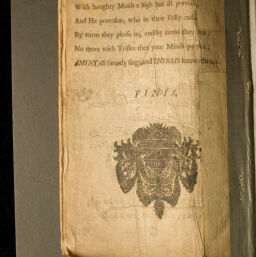 With haughty Maids a Sigh but ill prevails,
And He provokes, who in their Folly rails.
By turns they please us, and by turns they vex;
No more with Trifles then your Minds perplex;
AMYNTAS sweetly sings, and THYRSIS knows
FINIS.